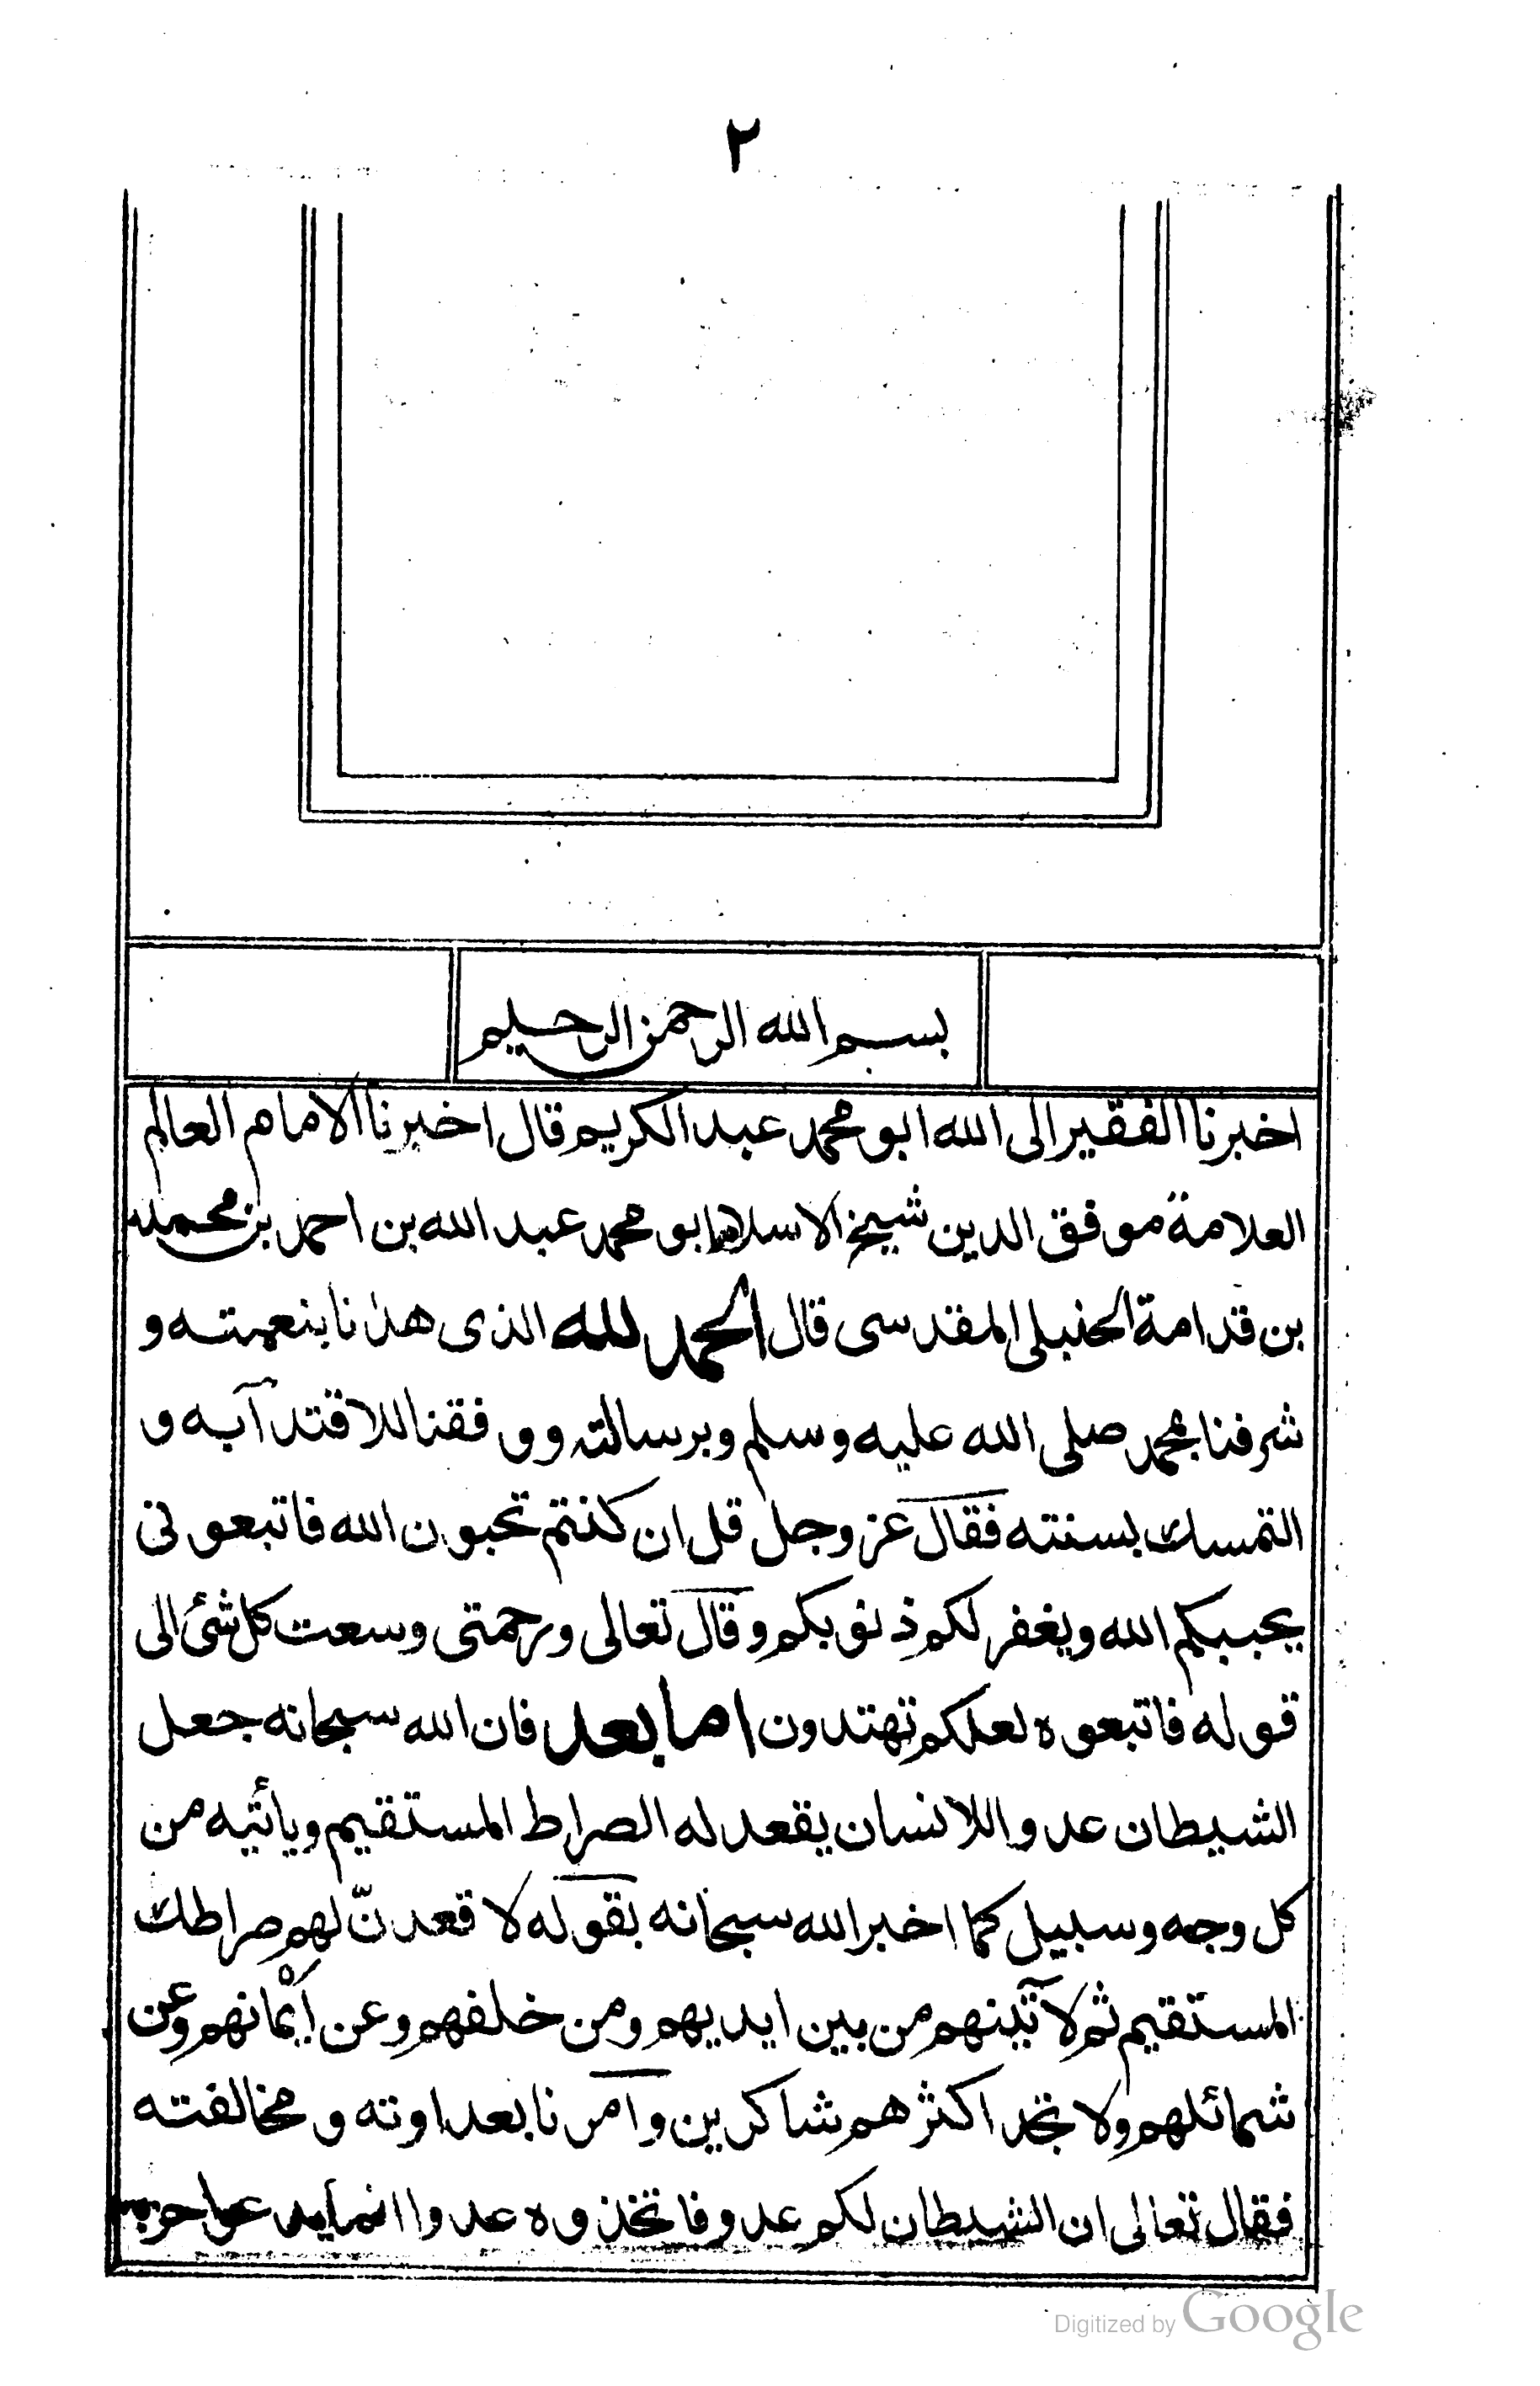 ٢
بسم الله الرحمن الرحيم
اخبرنا الفقير الى الله ابو محمد عبد الكريم قال اخبرنا الامام العالم
العلامة موفق الدين شيخ الاسلام ابو محمد عبد الله بن احمد بن محمد
بن قدامة الحنبلى المقدسى قال الحمد لله الذى هدٰنا بنعمته و
شرفنا بمحمد صلى الله عليه وسلم وبرسالته ووفقنا للاقتدآ به و
التمسك بسنته فقال عز وجل قل ان كنتم تحبون الله فاتبعونى
يحببكم الله ويغفر لكم ذنوبكم وقال تعالى ورحمتى وسعت كل شئ الى
قوله فاتبعوه لعلكم تهتدون اما بعد فان الله سبحانه جعل
الشيطان عدوا للانسان يقعد له الصراط المستقيم ويأتيه من
كل وجه وسبيل كما اخبر الله سبحانه بقوله لاقعدنّ لهم صراطك
المستقيم ثم لآتينهم من بين ايديهم ومن خلفهم وعن اَيْمانهم وعن
شمائلهم ولا تجد اكثرهم شاكرين وامرنا بعداوته و مخالفته
فقال تعالى ان الشيطان لكم عدو فاتخذوه عدوا انما يدعوا حزبه
Digitized by Google